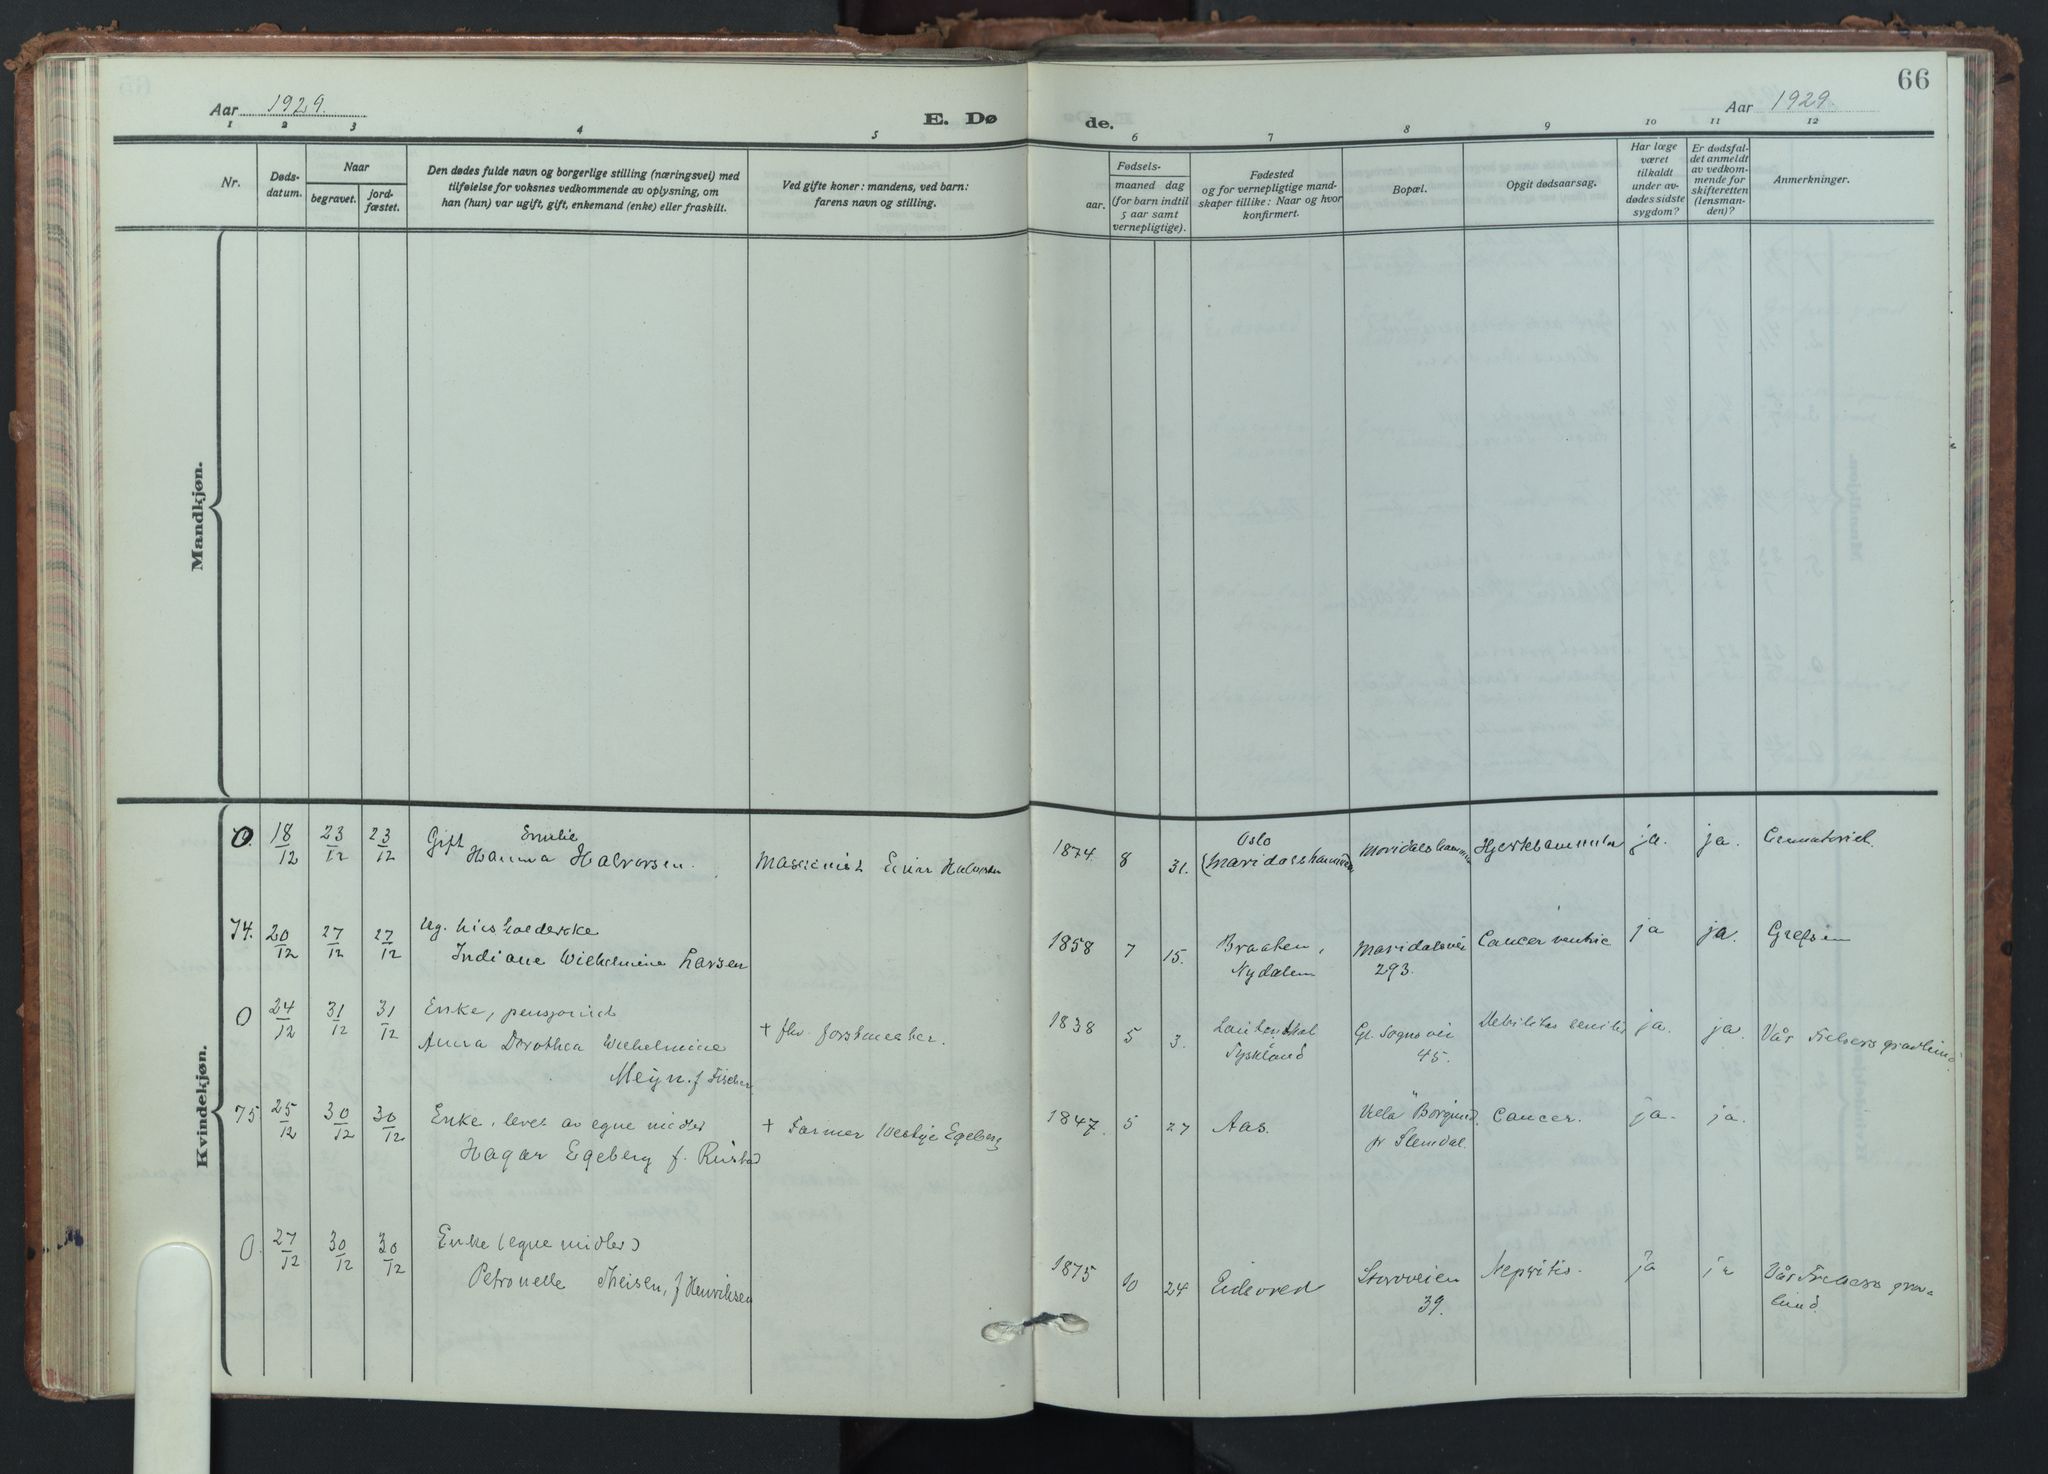 66
Aar 1929.
E. Dø
de.
Aar 1929.
1 2 3 4 5 6 7 8 9 10 11 12
Nr.
Døds-
datum.
Naar
begravet.
jord-
fæstet.
Den dødes fulde navn og borgerlige stilling (næringsvei) med
tilføielse for voksnes vedkommende av oplysning, om
han (hun) var ugift, gift, enkemand (enke) eller fraskilt.
Ved gifte koner: mandens, ved barn:
farens navn og stilling.
Fødsels-
aar.
maaned dag
(for barn indtil
5 aar samt
vernepligtige).
Fødested
og for vernepligtige mand-
skaper tillike: Naar og hvor
konfirmert.
Bopæl.
Opgit dødsaarsag.
Har læge
været
tilkaldt
under av-
dødes sidste
sygdom?
Er dødsfal-
det anmeldt
av vedkom-
mende for
skifteretten
(lensman-
den)?
Anmerkninger.
Mandkjøn.
Kvindekjøn.
0. 18/12 23/12 23/12 Gift Emilie
Hanna Halvorsen. Maskinist Einar Halvorsen 1874. 8 31. Oslo
(Maridalshammeren Maridalshammeren Hjertelammelse ja. ja. Crematoriet.
74. 20/12 27/12 27/12 Ug.
Indiane Wilhelmine Larsen 1858 7 15. Braaten,
Nydalen Maridalsvei
293. Cancer ventric ja ja. Grefsen
0 24/12 31/12 31/12 Enke, pensjonist
Anna Dorothea Wilhelmine
Meyn. f Fischer + fhv. forstmester. 1838 5 3.
Tyskland Gl. Sognsvei
45. Debilitas senilis ja. ja. Vår Frelsers gravlund
75 25/12 30/12 30/12 Enke, lever av egne midler
Hagar Egeberg f. Rustad + Farmer Westye Egeberg 1847. 5 27 Aas. Villa "Borgund
pr Slemdal. Cancer. ja. ja.
0. 27/12 30/12 30/12 Enke (egne midler)
Petronelle Theisen, f Henriksen 1875 10 24 Eidsvold Storoveien
39. Nepritis. ja ja Vår Frelsers grav-
lund.